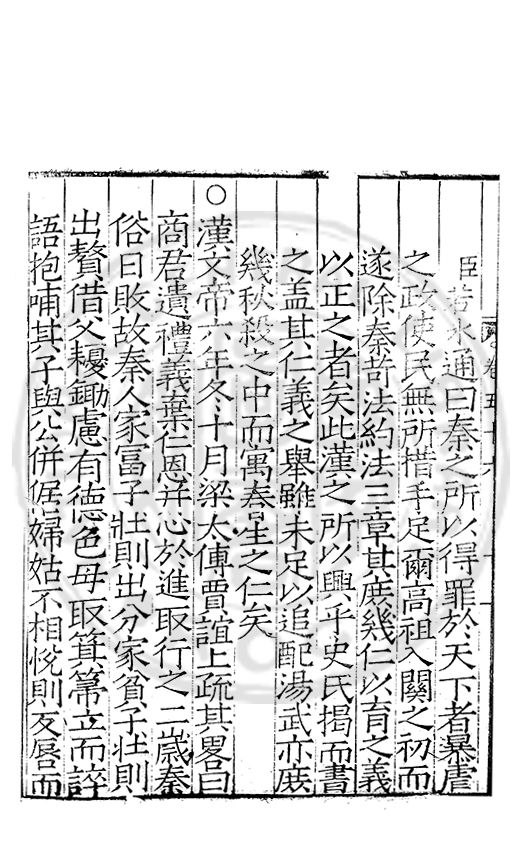 卷五十六
臣若水通曰秦之所以得罪於天下者暴虐
之政使民無所措手足爾高祖入關之初而
遂除秦苛法約法三章其庶幾仁以育之義
以正之者矣此漢之所以興乎史氏揭而書
之盖其仁義之舉雖未足以追配湯武亦庶
幾秋殺之中而寓春生之仁矣
○漢文帝六年冬十月梁太傅賈誼上疏其畧曰
商君遺禮義棄仁恩并心於進取行之二歲秦
俗日敗故秦人家富子壯則出分家貧子壯則
出贅借父耰鋤慮有德色母取箕箒立而誶
語抱哺其子與公併倨婦姑不相悅則反唇而